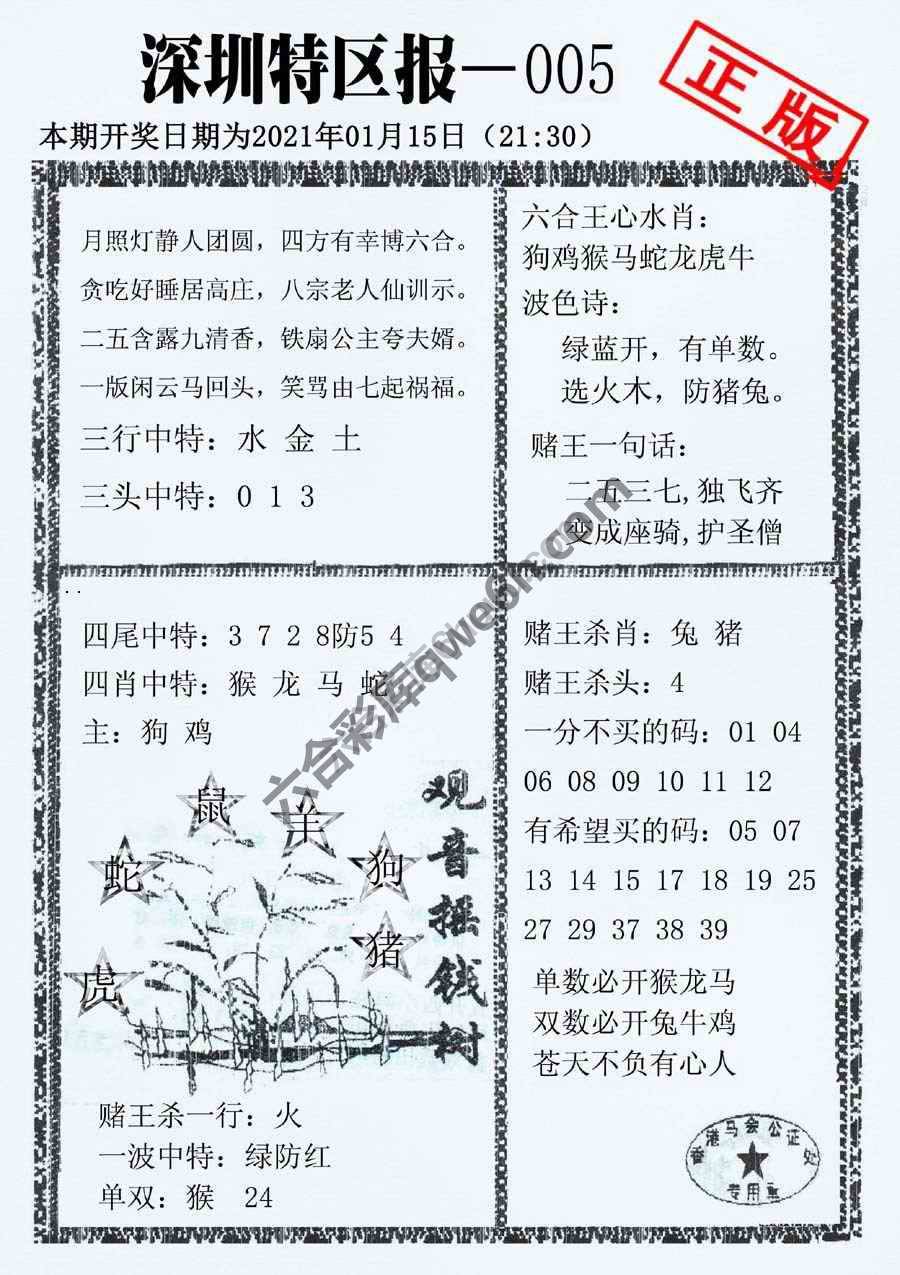 深圳特区报—005
正版
本期开奖日期为2021年01月15日（21:30）
月照灯静人团圆，四方有幸博六合。
贪吃好睡居高庄，八宗老人仙训示。
二五含露九清香，铁扇公主夸夫婿。
一版闲云马回头，笑骂由七起祸福。
三行中特：水 金 土
三头中特：0 1 3
六合王心水肖：
狗鸡猴马蛇龙虎牛
波色诗：
绿蓝开，有单数。
选火木，防猪兔。
赌王一句话：
二五三七,独飞齐
变成座骑,护圣僧
四尾中特：3 7 2 8防5 4
四肖中特：猴 龙 马 蛇
主：狗 鸡
鼠
羊
蛇
狗
猪
虎
观音摇钱树
赌王杀一行：火
一波中特：绿防红
单双：猴 24
赌王杀肖：兔 猪
赌王杀头：4
一分不买的码：01 04
06 08 09 10 11 12
有希望买的码：05 07
13 14 15 17 18 19 25
27 29 37 38 39
单数必开猴龙马
双数必开兔牛鸡
苍天不负有心人
香港马会公证处
专用章
六合彩库qwe6h.com